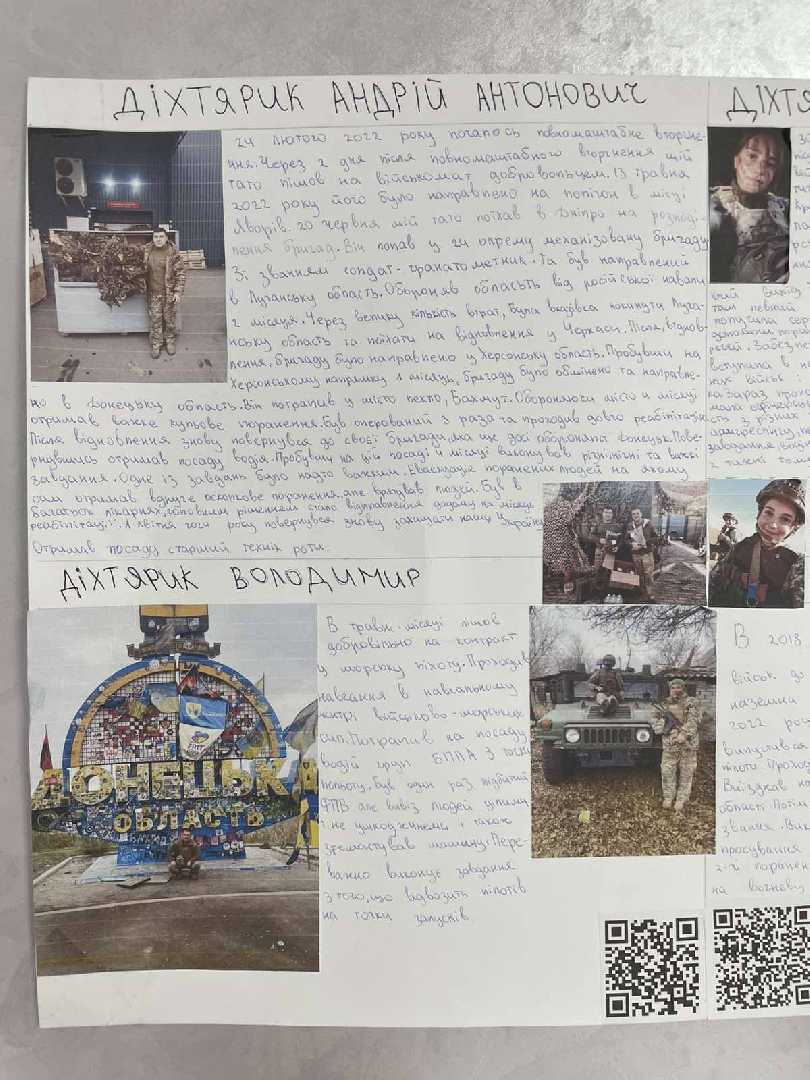 ДІХТЯРИК АНДРІЙ АНТОНОВИЧ
24 лютого 2022 року почалось повномаштабне вторгне-
ння. Через 2 дня після повномаштабного вторгнення мій
тато пішов на військомат добровольцем. 13 травня
2022 року його було направлено на полігон в місці
Яворів. 20 червня мій тато поїхав в Дніпро на розподі-
лення бригад. Він попав у 24 окрему механізовану бригаду
Зі званням солдат-гранатометник. Та був направлений
в Луганську область. Обороняв область від російської навали
2 місяця. Через велику кількість втрат, була вказівка покинути Луга-
нську область та поїхати на відновлення у Черкаси. Після віднов-
лення, бригаду було направлено у Херсонську область. Пробувши на
Херсонському напрямку 1 місяць, бригаду було обмінено та направле-
но в Донецьку область. Він потрапив у місто пекло, Бахмут. Обороняючи місто 4 місяці
отримав важке кульове поранення. Був оперований 3 раза та проходив довго реабілітацію
Після відновлення знову повернувся до своєї бригади, яка ще досі обороняла Донецьк. Пове-
рнувшись отримав посаду водія. Пробувши на цій посаді 4 місяці виконував різні та важкі
завдання. Одне із завдань було надто важким. Евакуація поранених людей на якому
сам отримав вдруге осколкове поранення, але врятував людей. Був в
багатьох лікарнях, рішенням стало відправлення додому на місяць
реабілітації. 1 квітня того року повернувся знову захищати нашу Україну
Отримав посаду старший технік роти.
ДІХТЯРИК ВОЛОДИМИР
В травні місяці пішов
добровільно на контракт
у морську піхоту. Проходив
навчання в навчальному
центрі військово-морських
сил. Потрапив на посаду
водій групи БПЛА з точки
польоту. Був один раз підбитий
ФПВ але вивіз людей цілими
і не ушкодженими і також
зремонтував машину. Пере-
важно виконує завдання
з того, що відвозить пілотів
на точки запусків.
ДОНЕЦЬКА
ОБЛАСТЬ
ДІХТЯ
вступила в
В 2018
військ до
наземни
2022 ро
випускався
пілоти
Виїзджав
області
звання.
просування
2-ге поранен
на вогневу